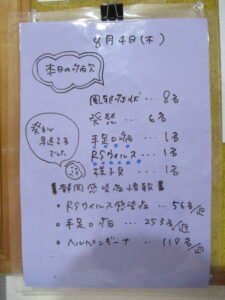 8月4日(木)
本日の病欠
風邪症状…8名
発熱…6名
手足口病…1名
RSウイルス…1名
1名
発熱で
早退2名
でした
静岡感染症情報
・RSウイルス感染症…56名/週
・手足口病…253名/週
・ヘルパンギーナ…119名/週